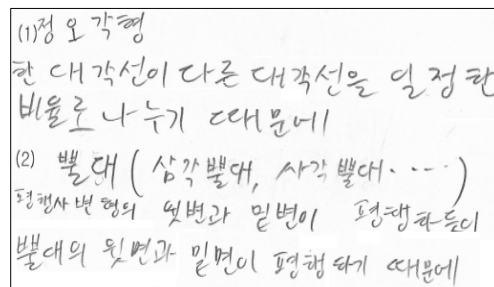 (1) 정오각형
한 대각선이 다른 대각선을 일정한
비율로 나누기 때문에
(2) 뿔대 ( 삼각뿔대, 사각뿔대 ····· )
평행사변형의 윗변과 밑변이 평행하듯이
뿔대의 윗면과 밑면이 평행하기 때문에